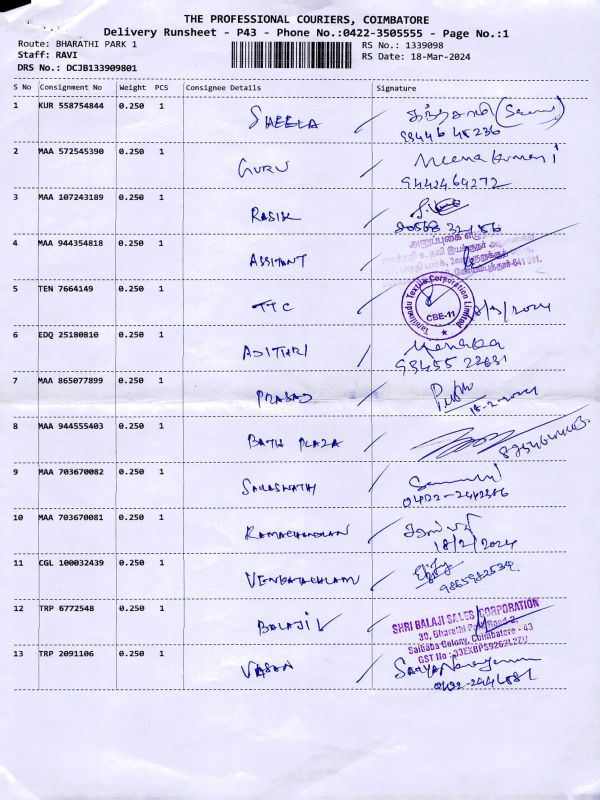 THE PROFESSIONAL COURIERS, COIMBATORE
Delivery Runsheet - P43 - Phone No.:0422-3505555 - Page No.:1
Route: BHARATHI PARK 1 RS No.: 1339098
Staff: RAVI RS Date: 18-Mar-2024
DRS No.: DCJB133909801
S No Consignment No Weight PCS Consignee Details Signature
1 KUR 558754844 0.250 1 SHEELA
2 MAA 572545390 0.250 1 GURU Meenakumari
9442469272
3 MAA 107243189 0.250 1 RASIK
4 MAA 944354818 0.250 1 ASSITANT
5 TEN 7664149 0.250 1 TTC Tamilnadu Textile Corporation Limited
CBE-11
6 EDQ 25180810 0.250 1 ADITHRI
7 MAA 865077899 0.250 1 PRASAD
8 MAA 944555403 0.250 1 BATH PLAZA
9 MAA 703670082 0.250 1 SARASWATHI
10 MAA 703670081 0.250 1 RAMACHANDRAN
18/2/2024
11 CGL 100032439 0.250 1 VENKATACHLAM
9865982534
12 TRP 6772548 0.250 1 BALAJI SHRI BALAJI SALES CORPORATION
39, Bharathi Park Road 2,
Saibaba Colony, Coimbatore - 43
13 TRP 2091106 0.250 1 VASAN